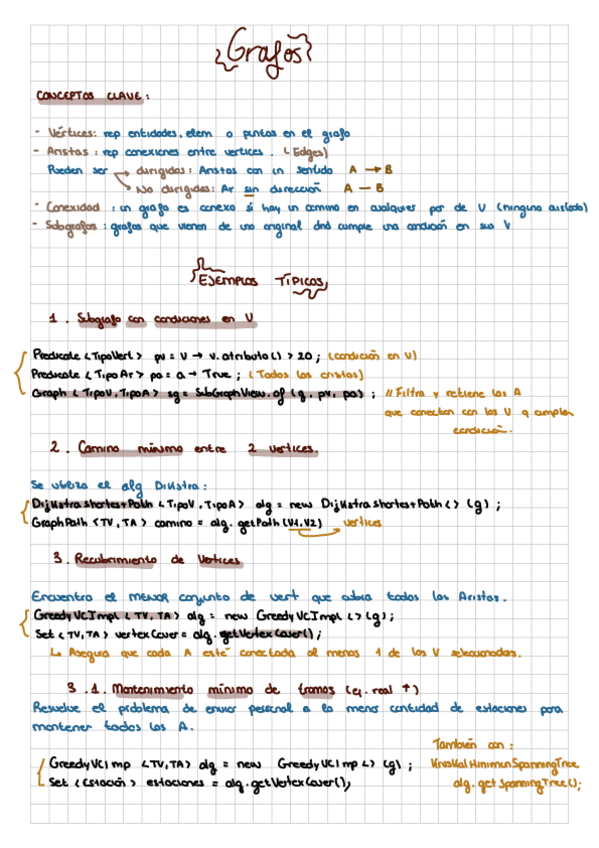 Grafos
CONCEPTOS CLAVE:
- Vértices: rep entidades, elem o puntos en el grafo
- Aristas: rep conexiones entre vertices. (Edges)
Pueden ser → dirigidas: Aristas con un sentido A → B
→ No dirigidas: Ar sin dirección A — B
- Conexidad: un grafo es conexo si hay un camino en cualquier par de V (ninguno aislado)
- Subgrafos: grafos que vienen de uno original dnd cumple una condición en sus V
EJEMPLOS TÍPICOS
1. Subgrafo con condiciones en V
Predicate <TipoVert> pv = V → v.atributo() > 20; (condición en V)
Predicate <TipoAr> pa = a → True; (Todas las aristas)
Graph <TipoV, TipoA> sg = SubGraphView.of (g, pv, pa); // Filtra y retiene las A
que conectan con los V q cumplen
condición.
2. Camino mínimo entre 2 vertices.
Se utiliza el alg Dikstra:
DijkstraShortestPath <TipoV, TipoA> alg = new DijkstraShortestPath <> (g);
GraphPath <TV, TA> camino = alg.getPath (V1, V2) → vertices
3. Recubrimiento de Vertices
Encuentra el MENOR conjunto de vert que cubra todas las Aristas.
GreedyVCImpl <TV, TA> alg = new GreedyVCImpl <> (g);
Set <TV, TA> vertexCover = alg.getVertexCover();
↳ Asegura que cada A esté conectada al menos 1 de los V seleccionados.
3.1. Mantenimiento mínimo de tramos (ej. real ↑)
Resuelve el problema de enviar personal a la menor cantidad de estaciones para
mantener todas las A.
También con:
GreedyVCImp <TV, TA> alg = new GreedyVCImp <> (g); KruskalMinimunSpanningTree
Set <Estación> estaciones = alg.getVertexCover(); alg.getSpanningTree();